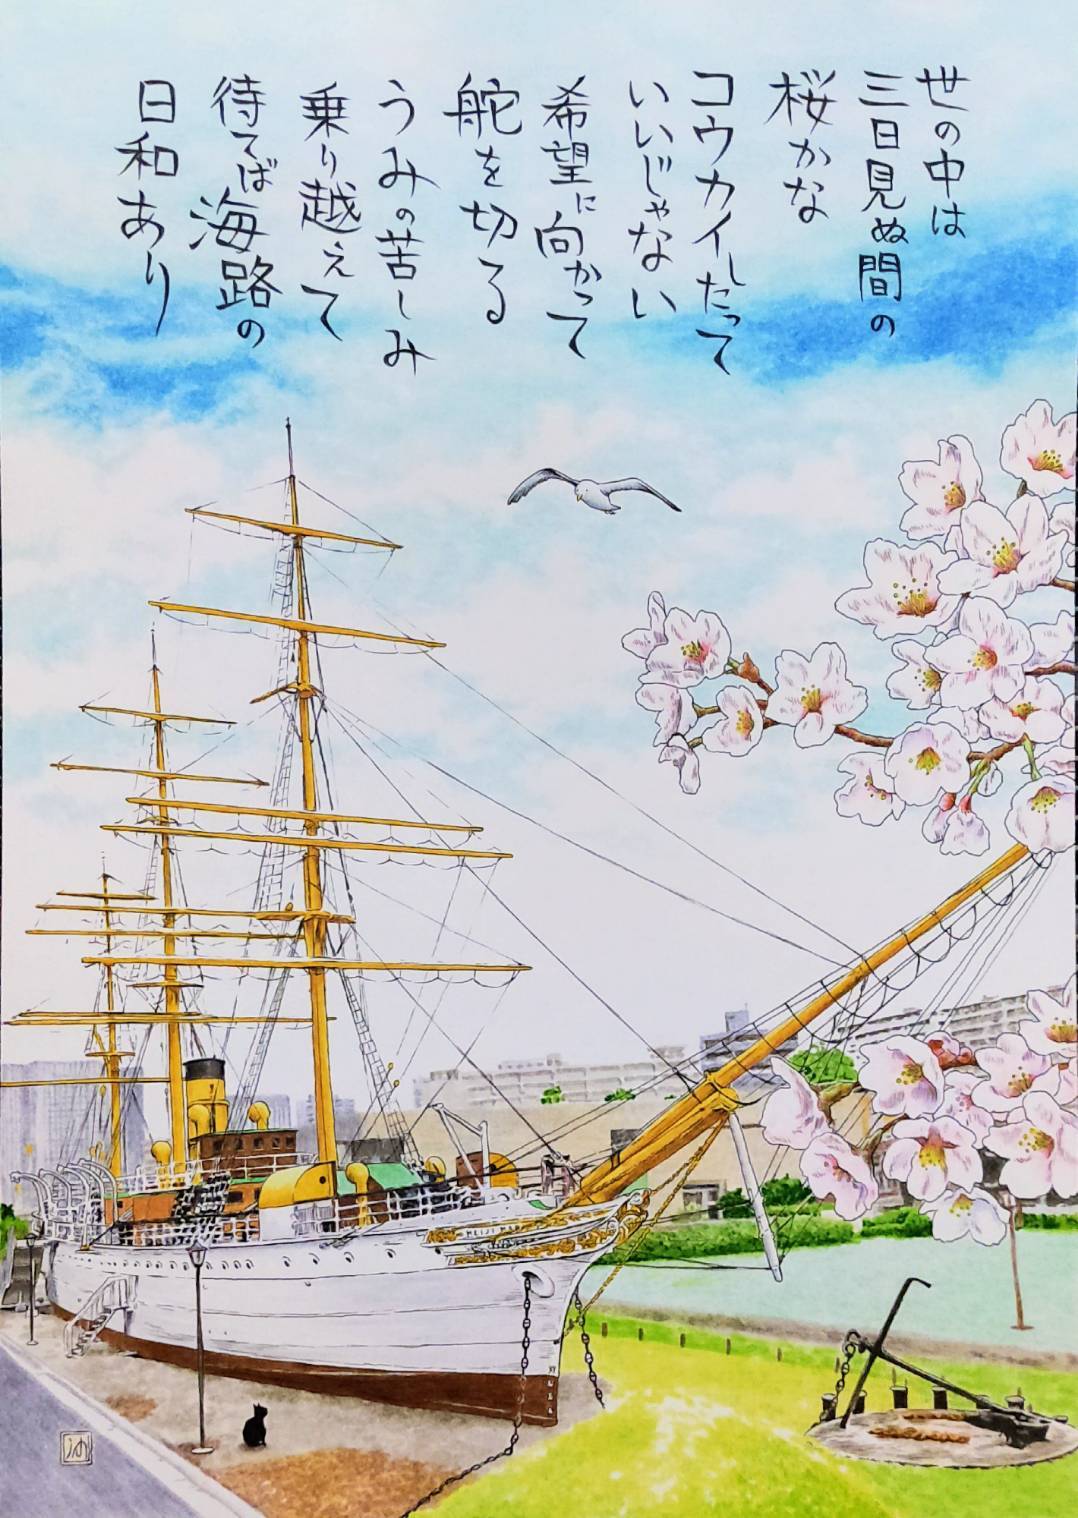 世の中は
三日見ぬ間の
桜かな
コウカイしたって
いいじゃない
希望に向かって
舵を切る
うみの苦しみ
乗り越えて
待てば海路の
日和あり